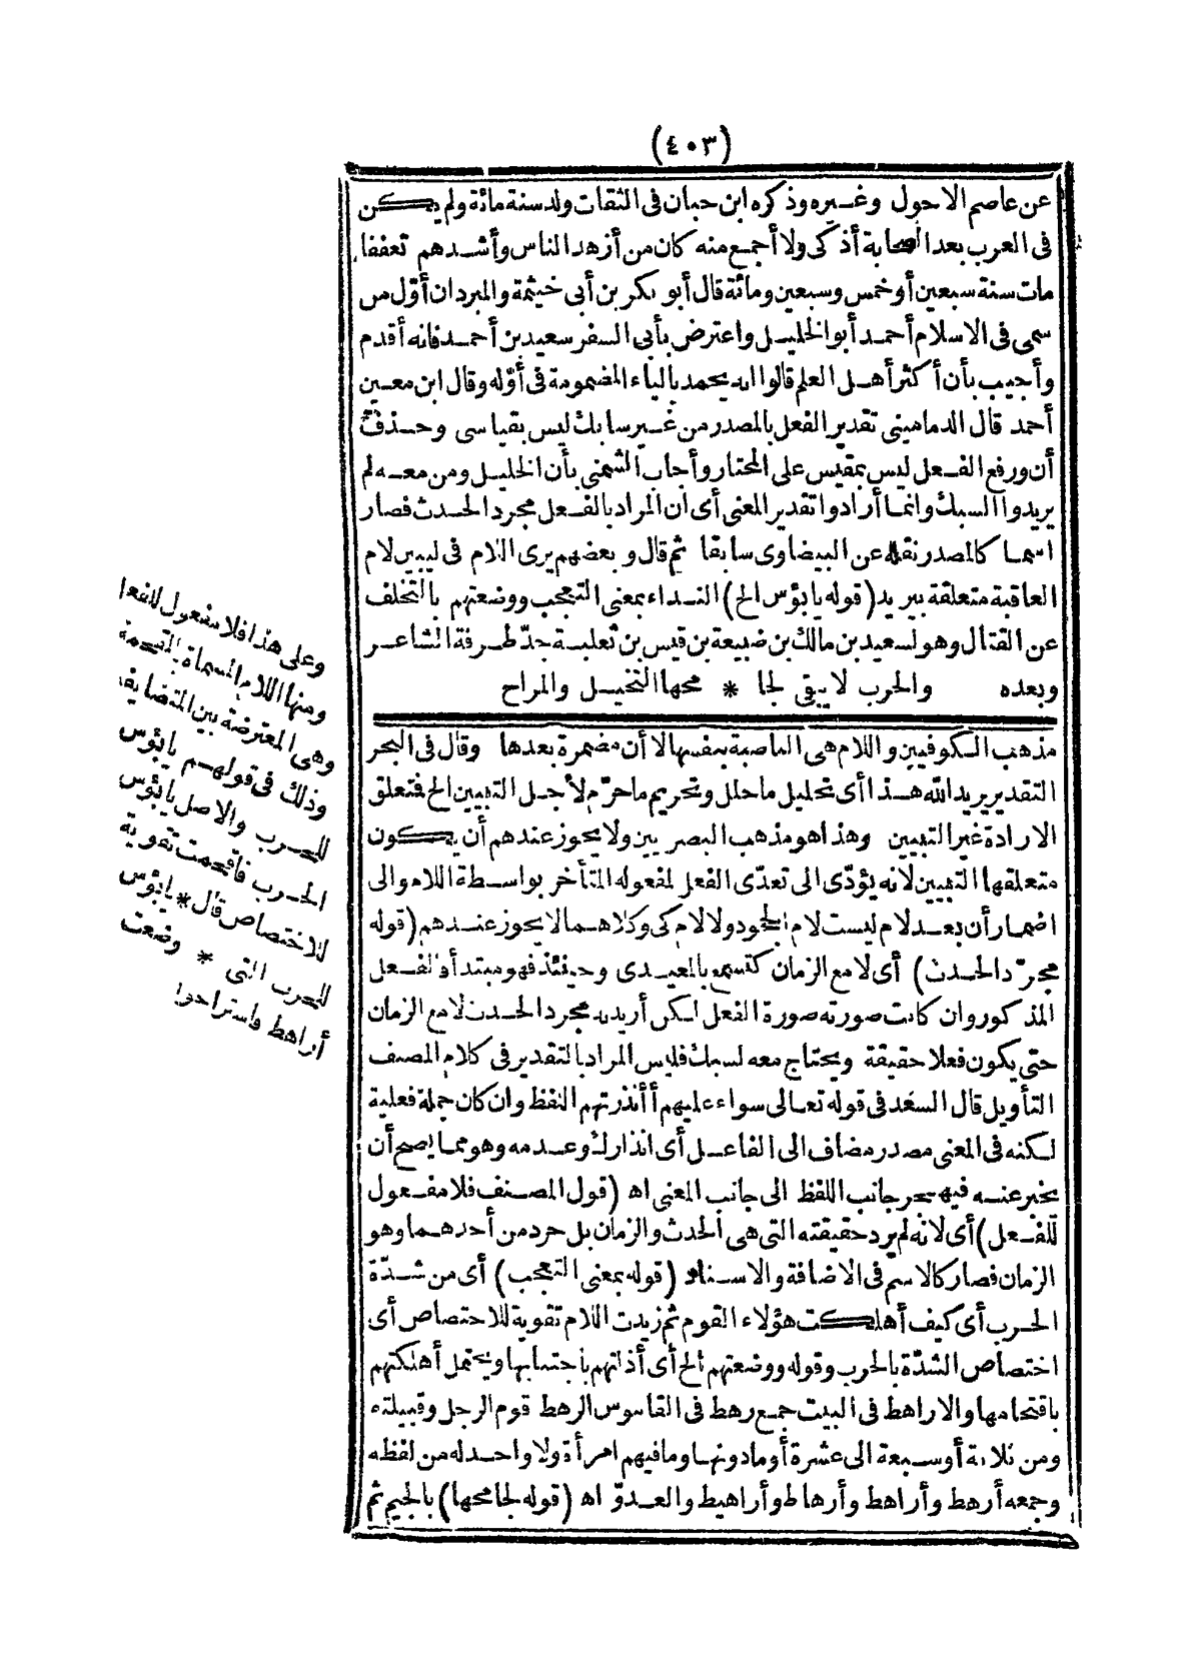 (٤٠٣)
عن عاصم الاحول وغيره وذكره ابن حبان في الثقات ولد سنة مائة ولم يكن
في العرب بعد الصحابة أذكى ولا أجمع منه كان من أزهد الناس وأشدهم تعففا
مات سنة سبعين أو خمس وسبعين ومائة قال أبو بكر بن أبي خيثمة والمبرد ان أوّل من
سمى في الاسلام أحمد أبو الخليل واعترض بأبي السفر سعيد بن أحمد فانه أقدم
وأجيب بأن أكثر أهل العلم قالوا انه يحمد بالياء المضمومة في أوّله وقال ابن معين
أحمد قال الدماميني تقدير الفعل بالمصدر من غير سابك ليس بقياسى وحذف
أن ورفع الفعل ليس بمقيس على المختار وأجاب الشمني بأن الخليل ومن معه لم
يريدوا السبك وانما أرادوا تقدير المعنى أى ان المراد بالفعل مجرد الحدث فصار
اسما كالمصدر نقله عن البيضاوى سابقا ثم قال وبعضهم يرى اللام في ليبين لام
العاقبة متعلقة بيريد (قوله يابؤس الخ) النداء بمعنى التعجب ووضعتهم بالتخلف
عن القتال وهو لسعيد بن مالك بن ضبيعة بن قيس بن ثعلبة جدّ طرفة الشاعر
وبعده والحرب لا يبقى لجا * محها التخيل والمراح
مذهب الكوفيين واللام هى الناصبة بنفسها لا أن مضمرة بعدها وقال في البحر
التقدير يريد الله هذا أى تحليل ما حلل وتحريم ما حرّم لأجل التبيين الخ فتعلق
الارادة غير التبيين وهذا هو مذهب البصريين ولا يجوز عندهم أن يكون
متعلقها التبيين لانه يؤدّى الى تعدّى الفعل لمفعوله المتأخر بواسطة اللام والى
اضمار أن بعد لام ليست لام الجحود ولا لام كى وكلاهما لا يجوز عندهم (قوله
مجرّد الحدث) أى لا مع الزمان كتسمع بالمعيدى وحينئذ فهو مبتدأ والفعل
المذكور وان كانت صورته صورة الفعل لكن أريد به مجرد الحدث لا مع الزمان
حتى يكون فعلا حقيقة ويحتاج معه لسبك فليس المراد بالتقدير في كلام المصنف
التأويل قال السعد في قوله تعالى سواء عليهم أأنذرتهم اللفظ وان كان جملة فعلية
لكنه في المعنى مصدر مضاف الى الفاعل أى انذارك وعدمه وهو مما يصح أن
يخبر عنه فيهجر جانب اللفظ الى جانب المعنى اه (قول المصنف فلا مفعول
للفعل) أى لانه لم يرد حقيقته التى هى الحدث والزمان بل جرد من أحدهما وهو
الزمان فصار كالاسم في الاضافة والاسناد (قوله بمعنى التعجب) أى من شدّة
الحرب أى كيف أهلكت هؤلاء القوم ثم زيدت اللام تقوية للاختصاص أى
اختصاص الشدّة بالحرب وقوله ووضعتهم الخ أى أذلتهم باجتنابها ويحتمل أهلكتهم
باقتحامها والاراهط في البيت جمع رهط في القاموس الرهط قوم الرجل وقبيلته
ومن ثلاثة أو سبعة الى عشرة أو ما دونها وما فيهم امرأة ولا واحد له من لفظه
وجمعه أرهط وأراهط وأرهاط وأراهيط والعدوّ اه (قوله لجامحها) بالجيم ثم
وعلى هذا فلا مفعول للفعل
ومنها اللام المسماة بالمقحمة
وهى المعترضة بين المتضايفين
وذلك في قولهم يابؤس
للحرب والاصل يابؤس
الحرب فأقحمت تقوية
للاختصاص قال * يابؤس
للحرب التى * وضعت
أراهط فاستراحوا